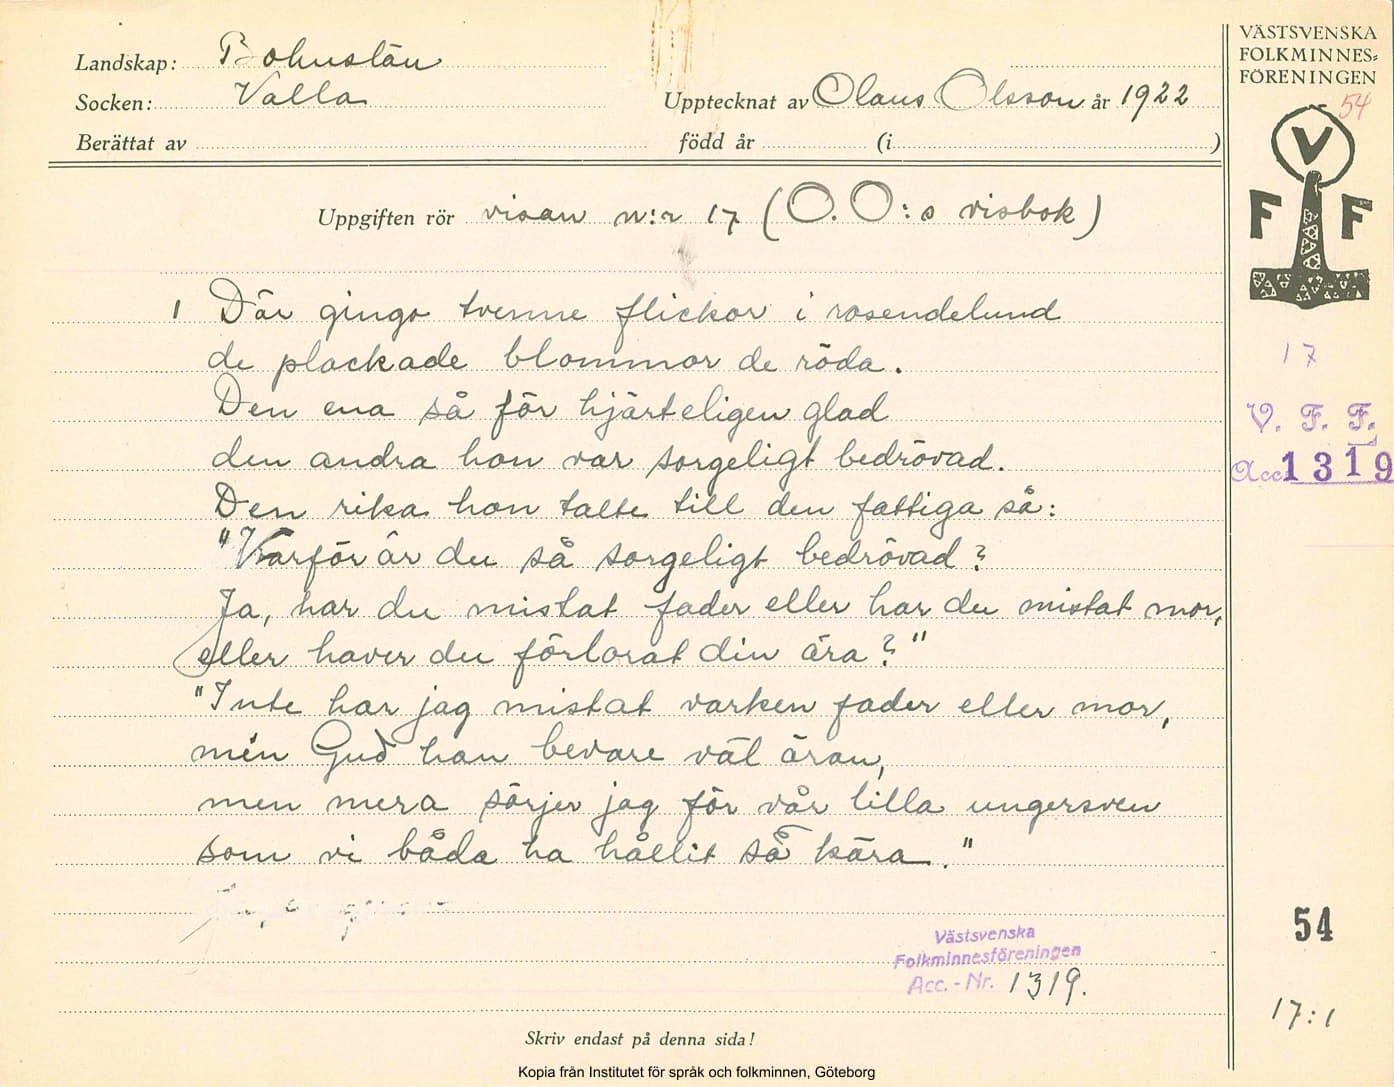 Landskap: Bohuslän
Socken: Valla
Upptecknat av Olaus Olsson år 1922
Berättat av
född år (i )
Uppgiften rör visan n:r 17 (O. O:s visbok)
1 Där gingo tvenne flickor i rosendelund
de plockade blommor de röda.
Den ena så för hjärteligen glad
den andra hon var sorgeligt bedrövad.
Den rika hon talte till den fattiga så:
"Varför är du så sorgeligt bedrövad?
Ja, har du mistat fader eller har du mistat mor,
eller haver du förlorat din ära?"
"Inte har jag mistat varken fader eller mor,
men Gud han bevare väl äran,
men mera sörjer jag för vår lilla ungersven
som vi båda ha hållit så kära."
Västsvenska
Folkminnesföreningen
Acc.-Nr. 1319.
Skriv endast på denna sida!
VÄSTSVENSKA
FOLKMINNES=
FÖRENINGEN
54
V
F F
17
V. F. F.
Acc 1319
54
17:1
Kopia från Institutet för språk och folkminnen, Göteborg